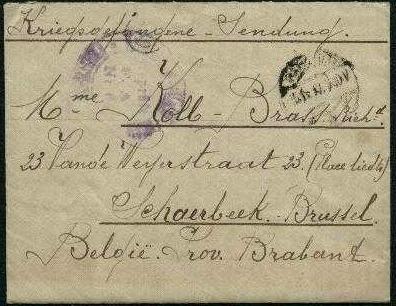 Kriegsgefangene - Sendung.
Mme Koll - Brass
23 Vande Weyerstraat 23. (Place
Schaerbeek. - Brussel.
België. Prov. Brabant.